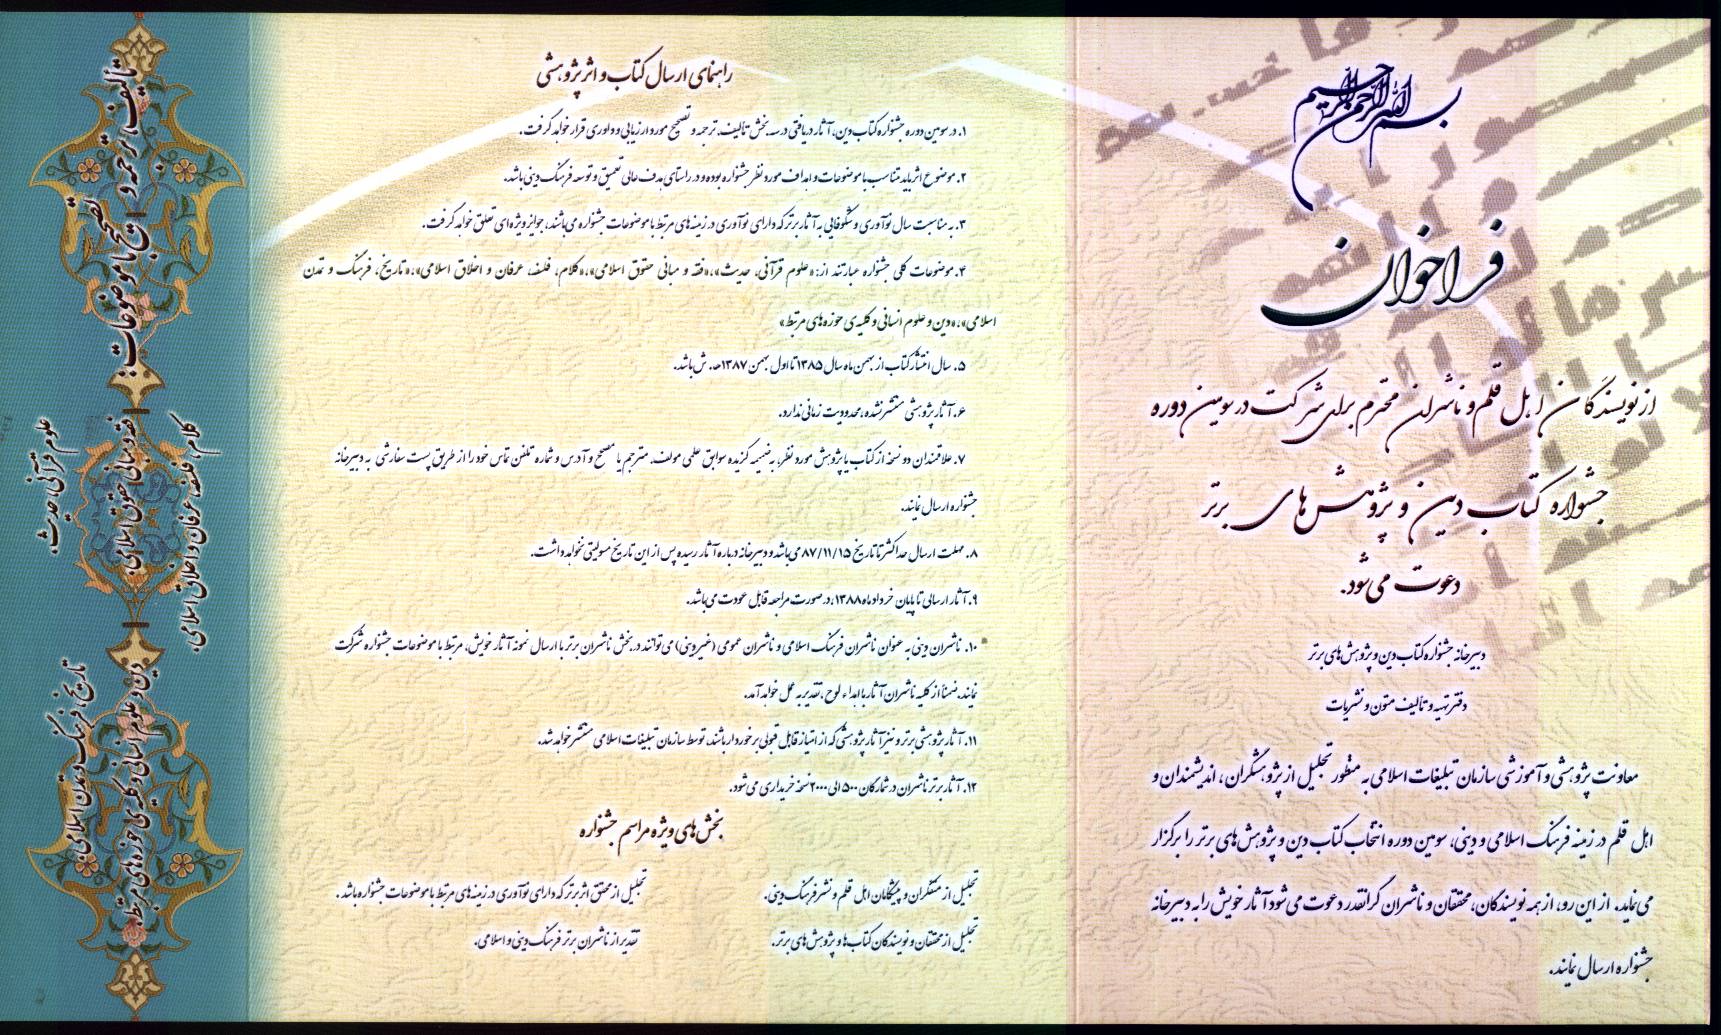 بسم الله الرحمن الرحیم
فراخوان
از نویسندگان اهل قلم و ناشران محترم برای شرکت در سومین دوره
جشنواره کتاب دین و پژوهش‌های برتر
دعوت می‌شود.
دبیرخانه جشنواره کتاب دین و پژوهش‌های برتر
دفتر تهیه و تألیف متون و نشریات
معاونت پژوهشی و آموزشی سازمان تبلیغات اسلامی به منظور تجلیل از پژوهشگران، اندیشمندان و
اهل قلم در زمینه فرهنگ اسلامی و دینی، سومین دوره انتخاب کتاب دین و پژوهش‌های برتر را برگزار
می‌نماید. از این رو، از همه نویسندگان، محققان و ناشران گرانقدر دعوت می‌شود آثار خویش را به دبیرخانه
جشنواره ارسال نمایند.
راهنمای ارسال کتاب و اثر پژوهشی
۱. در سومین دوره جشنواره کتاب دین، آثار دریافتی در سه بخش تألیف، ترجمه و تصحیح مورد ارزیابی و داوری قرار خواهد گرفت.
۲. موضوع اثر باید متناسب با موضوعات و اهداف مورد نظر جشنواره بوده و در راستای هدف عالی تعمیق و توسعه فرهنگ دینی باشد.
۳. به مناسبت سال نوآوری و شکوفایی به آثار برتر که دارای نوآوری در زمینه‌های مرتبط با موضوعات جشنواره می‌باشند، جوایز ویژه‌ای تعلق خواهد گرفت.
۴. موضوعات کلی جشنواره عبارتند از: «علوم قرآنی، حدیث»،«فقه و مبانی حقوق اسلامی»،«کلام، فلسفه، عرفان و اخلاق اسلامی»،«تاریخ، فرهنگ و تمدن
اسلامی»،«دین و علوم انسانی و کلیه‌ی حوزه‌های مرتبط»
۵. سال انتشار کتاب از بهمن ماه سال ۱۳۸۵ تا اول بهمن ۱۳۸۷ ه‍. ش باشد.
۶. آثار پژوهشی منتشر نشده، محدودیت زمانی ندارد.
۷. علاقمندان دو نسخه از کتاب یا پژوهش مورد نظر، به ضمیمه گزیده سوابق علمی مولف، مترجم یا مصحح و آدرس و شماره تلفن تماس خود را از طریق پست سفارشی به دبیرخانه
جشنواره ارسال نمایند.
۸. مهلت ارسال حداکثر تا تاریخ ۸۷/۱۱/۱۵ می‌باشد و دبیرخانه درباره آثار رسیده پس از این تاریخ مسولیتی نخواهد داشت.
۹. آثار ارسالی تا پایان خرداد ماه ۱۳۸۸، در صورت مراجعه قابل عودت می‌باشد.
۱۰. ناشران دینی به عنوان ناشران فرهنگ اسلامی و ناشران عمومی (غیر دینی) می‌توانند در بخش ناشران برتر با ارسال نمونه آثار خویش، مرتبط با موضوعات جشنواره شرکت
نمایند. ضمناً از کلیه ناشران آثار با اهداء لوح، تقدیر به عمل خواهد آمد.
۱۱. آثار پژوهشی برتر و نیز آثار پژوهشی که از امتیاز قابل قبولی برخوردار باشند، توسط سازمان تبلیغات اسلامی منتشر خواهد شد.
۱۲. آثار برتر ناشران در شمارگان ۵۰۰ الی ۲۰۰۰ نسخه خریداری می‌شود.
بخش‌های ویژه مراسم جشنواره
تجلیل از متفکران و پیشگامان اهل قلم و نشر فرهنگ دینی.
تجلیل از محققان و نویسندگان کتاب‌ها و پژوهش‌های برتر.
تجلیل از محقق اثر برتر که دارای نوآوری در زمینه‌های مرتبط با موضوعات جشنواره باشد.
تقدیر از ناشران برتر فرهنگ دینی و اسلامی.
تألیف، ترجمه و تصحیح با موضوعات:
علوم قرآنی، حدیث.
فقه و مبانی حقوق اسلامی.
کلام، فلسفه، عرفان و اخلاق اسلامی.
تاریخ، فرهنگ و تمدن اسلامی.
دین و علوم انسانی و کلیه‌ی حوزه‌های مرتبط.